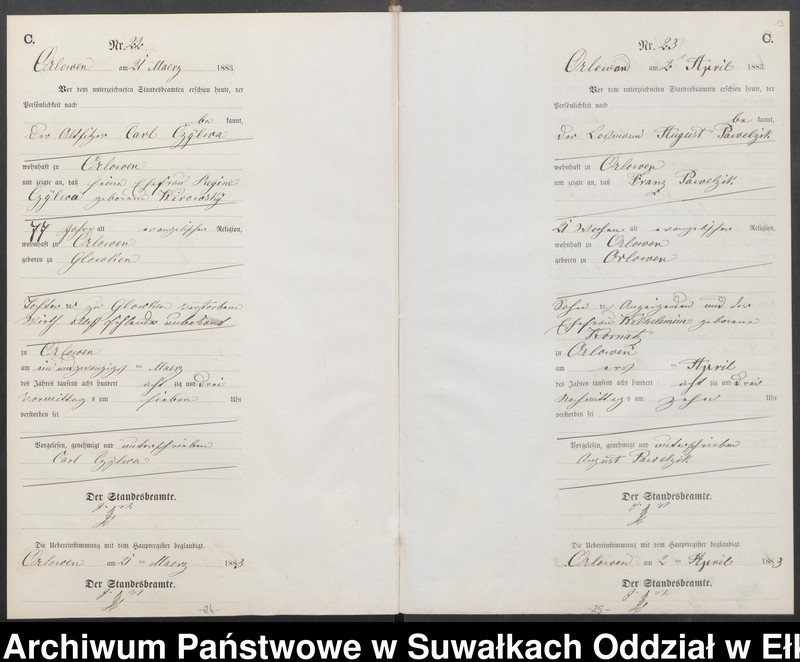 C.
Nr. 22
Orlowen am 21 Maerz 1883.
Vor dem unterzeichneten Standesbeamten erschien heute, der
Persönlichkeit nach
be kannt,
der Altsitzer Carl Czÿlwa
wohnhaft zu Orlowen
und zeigte an, daß seine Ehefrau Regine
Czÿlwa geborene
77 Jahr alt evangelischer Religion,
wohnhaft zu Orlowen
geboren zu Glowken
Tochter zu Glowken
Wirth unbekannt
zu Orlowen
am ein und zwanzigsten Maerz
des Jahres tausend acht hundert acht zig und drei
Vormittag s um sieben Uhr
verstorben sei
Vorgelesen, genehmigt und unterschrieben
Carl Czÿlwa
Der Standesbeamte.
Die Uebereinstimmung mit dem Hauptregister beglaubigt.
Orlowen am 21 ten Maerz 1883
Der Standesbeamte.
-24-
13
Nr. 23
C.
Orlowen am 2 April 1883.
Vor dem unterzeichneten Standesbeamten erschien heute, der
Persönlichkeit nach
be kannt,
der Losmann August Pawelzik
wohnhaft zu Orlowen
und zeigte an, daß Franz Pawelzik
21 Wochen alt evangelischer Religion,
wohnhaft zu Orlowen
geboren zu Orlowen
Sohn Anzeigenden und der
Ehefrau Wilhelmine geborene
Kornatz
zu Orlowen
am ersten April
des Jahres tausend acht hundert acht zig und drei
Nachmittag s um zehn Uhr
verstorben sei
Vorgelesen, genehmigt und unterschrieben
August Pawelzik
Der Standesbeamte.
Die Uebereinstimmung mit dem Hauptregister beglaubigt.
Orlowen am 2 ten April 1883
Der Standesbeamte.
-25-
Archiwum Państwowe w Suwałkach Oddział w Ełk